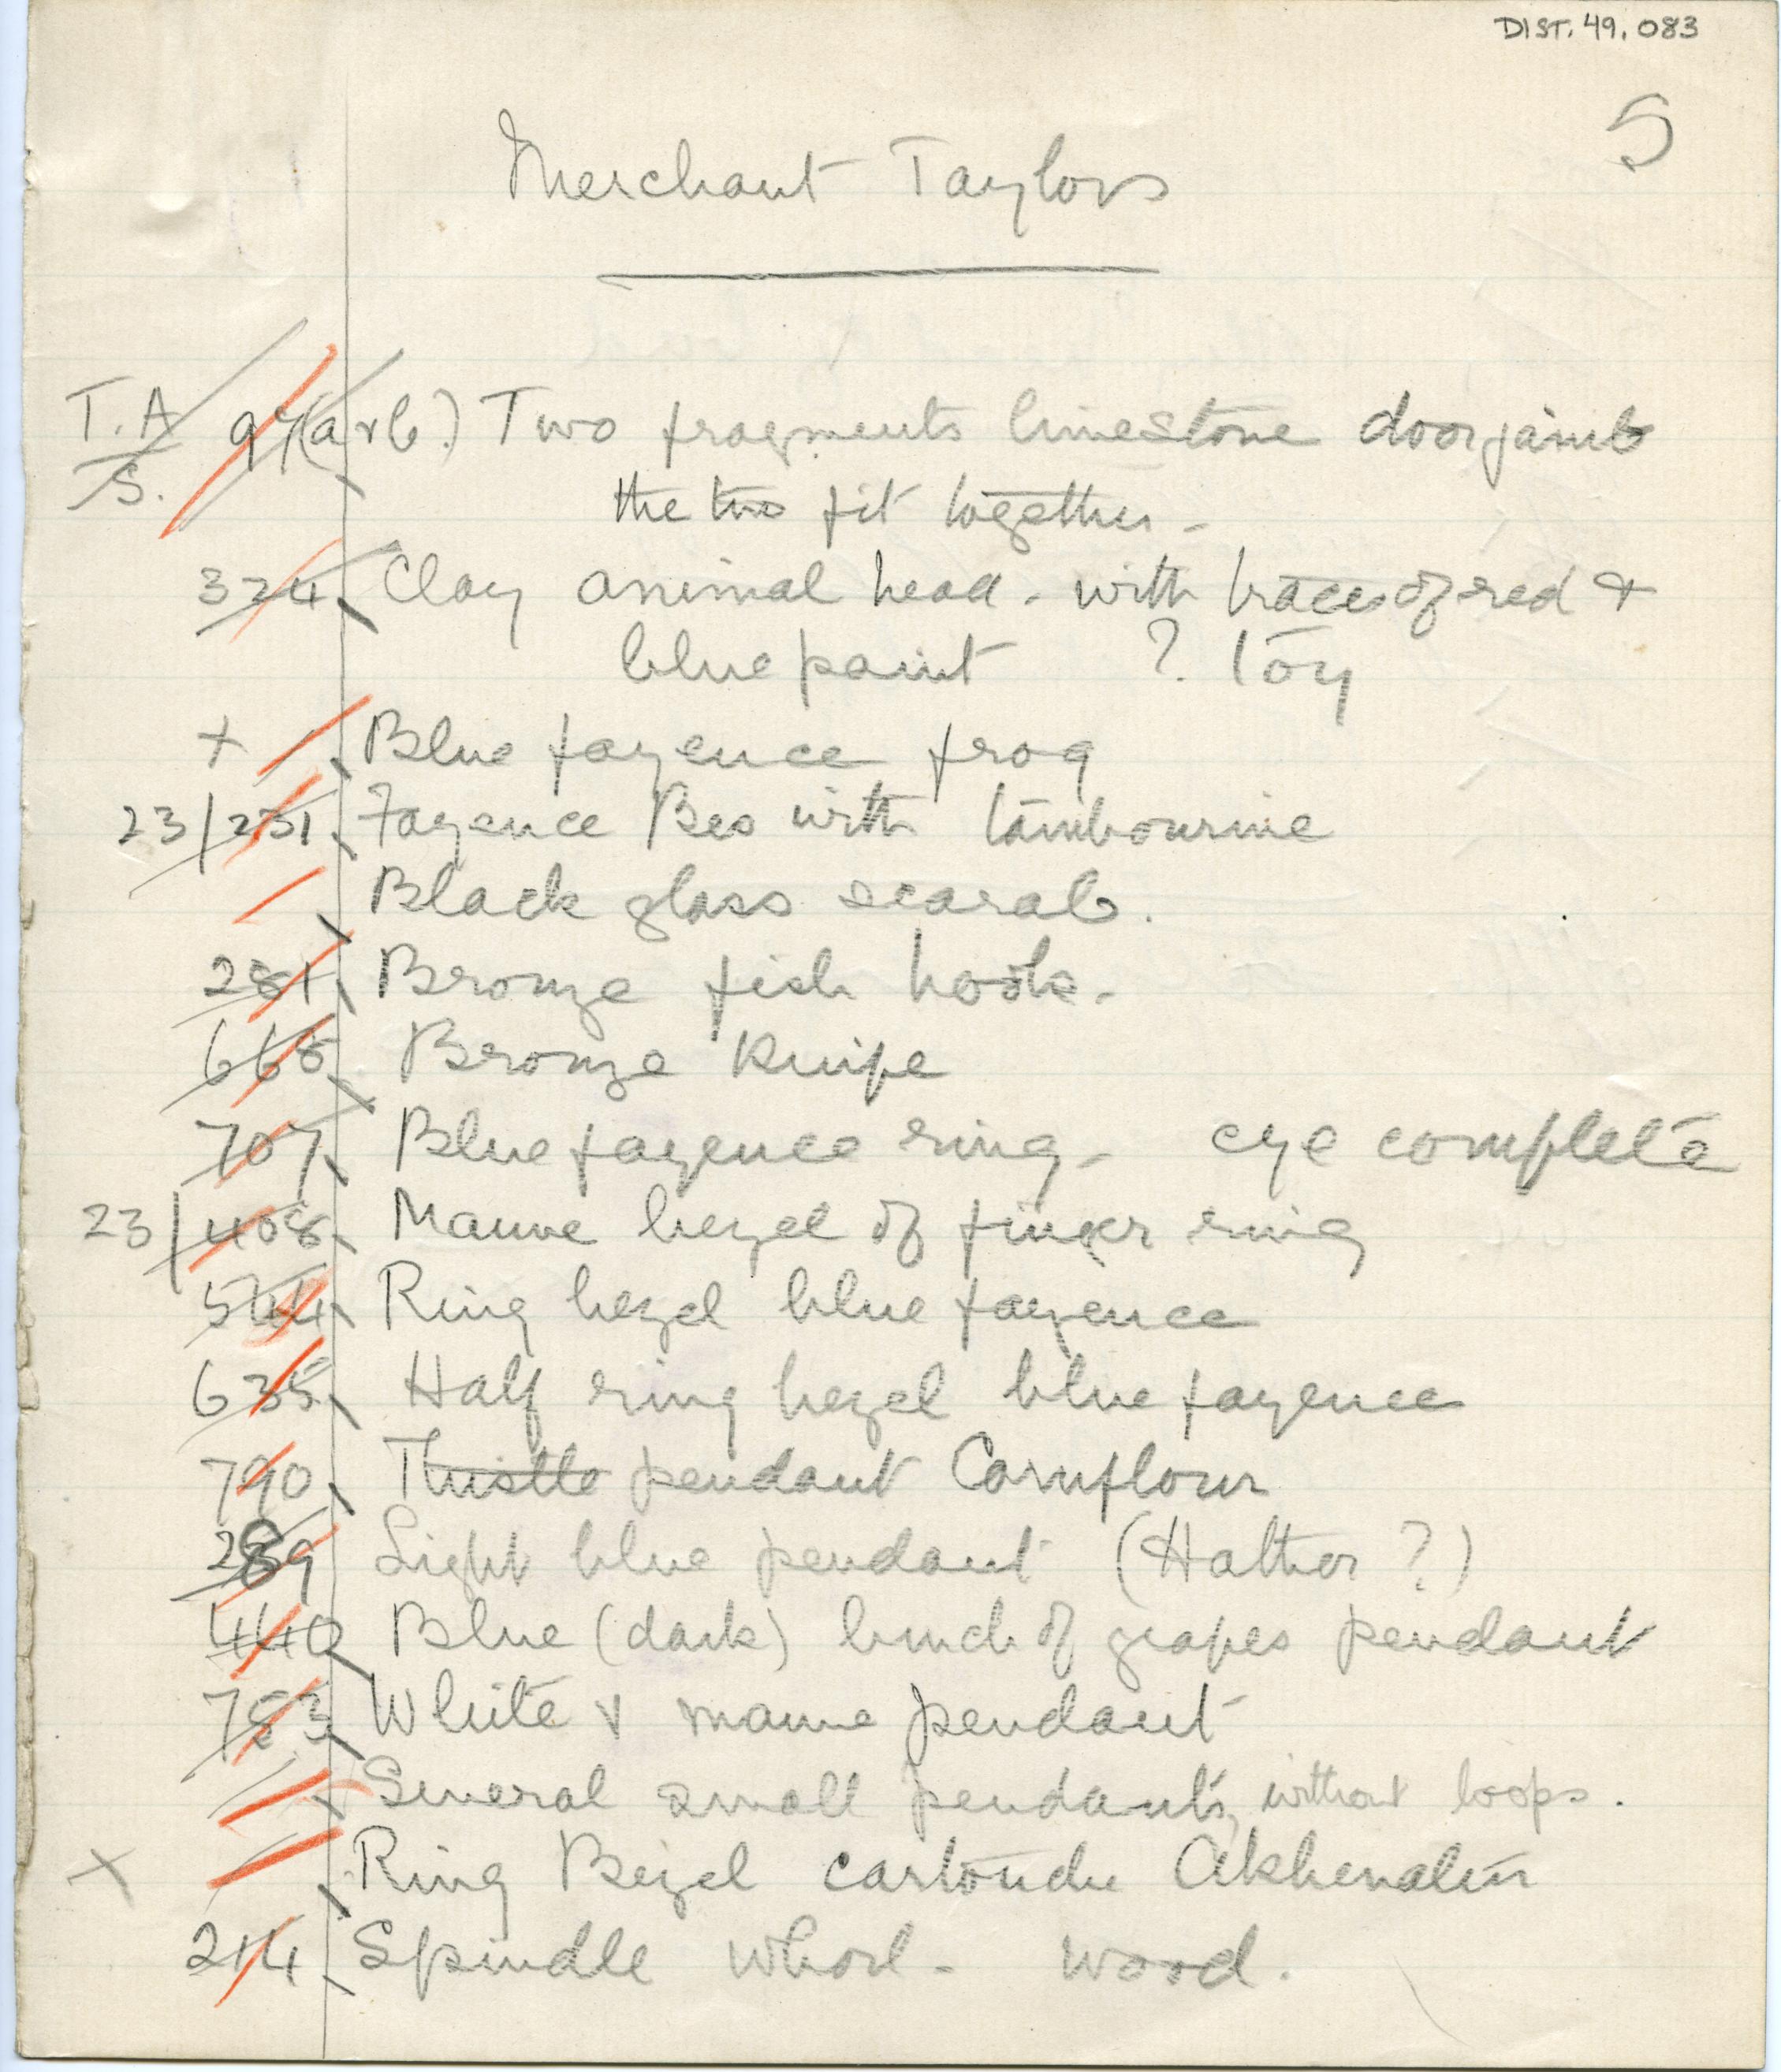 DIST. 49. 083
5
Merchant Taylors
T.A
S. 97(a+b.) Two fragments limestone doorjamb
the two fit together -
324 Clay animal head - with traces of red +
blue paint ? Toy
+ Blue fayence frog
23/231 Fayence Bes with tambourine
Black glass scarab.
281 Bronze fish hook.
668 Bronze Knife
707 Blue fayence ring - eye complete
23/408 Mauve bezel of finger ring
544 Ring bezel blue fayence
635 Half ring bezel blue fayence
790 Thistle pendant Cornflour
289 Light blue pendant (Hathor ?)
440 Blue (dark) bunch of grapes pendant
783 White + mauve pendant
Several small pendants, without loops.
+ Ring Bezel cartouche Akhenaten
214 Spindle Whorl - Wood.